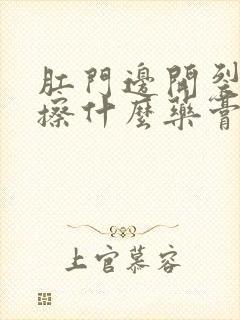 肛門邊開裂
擦什麼藥膏
上官慕容